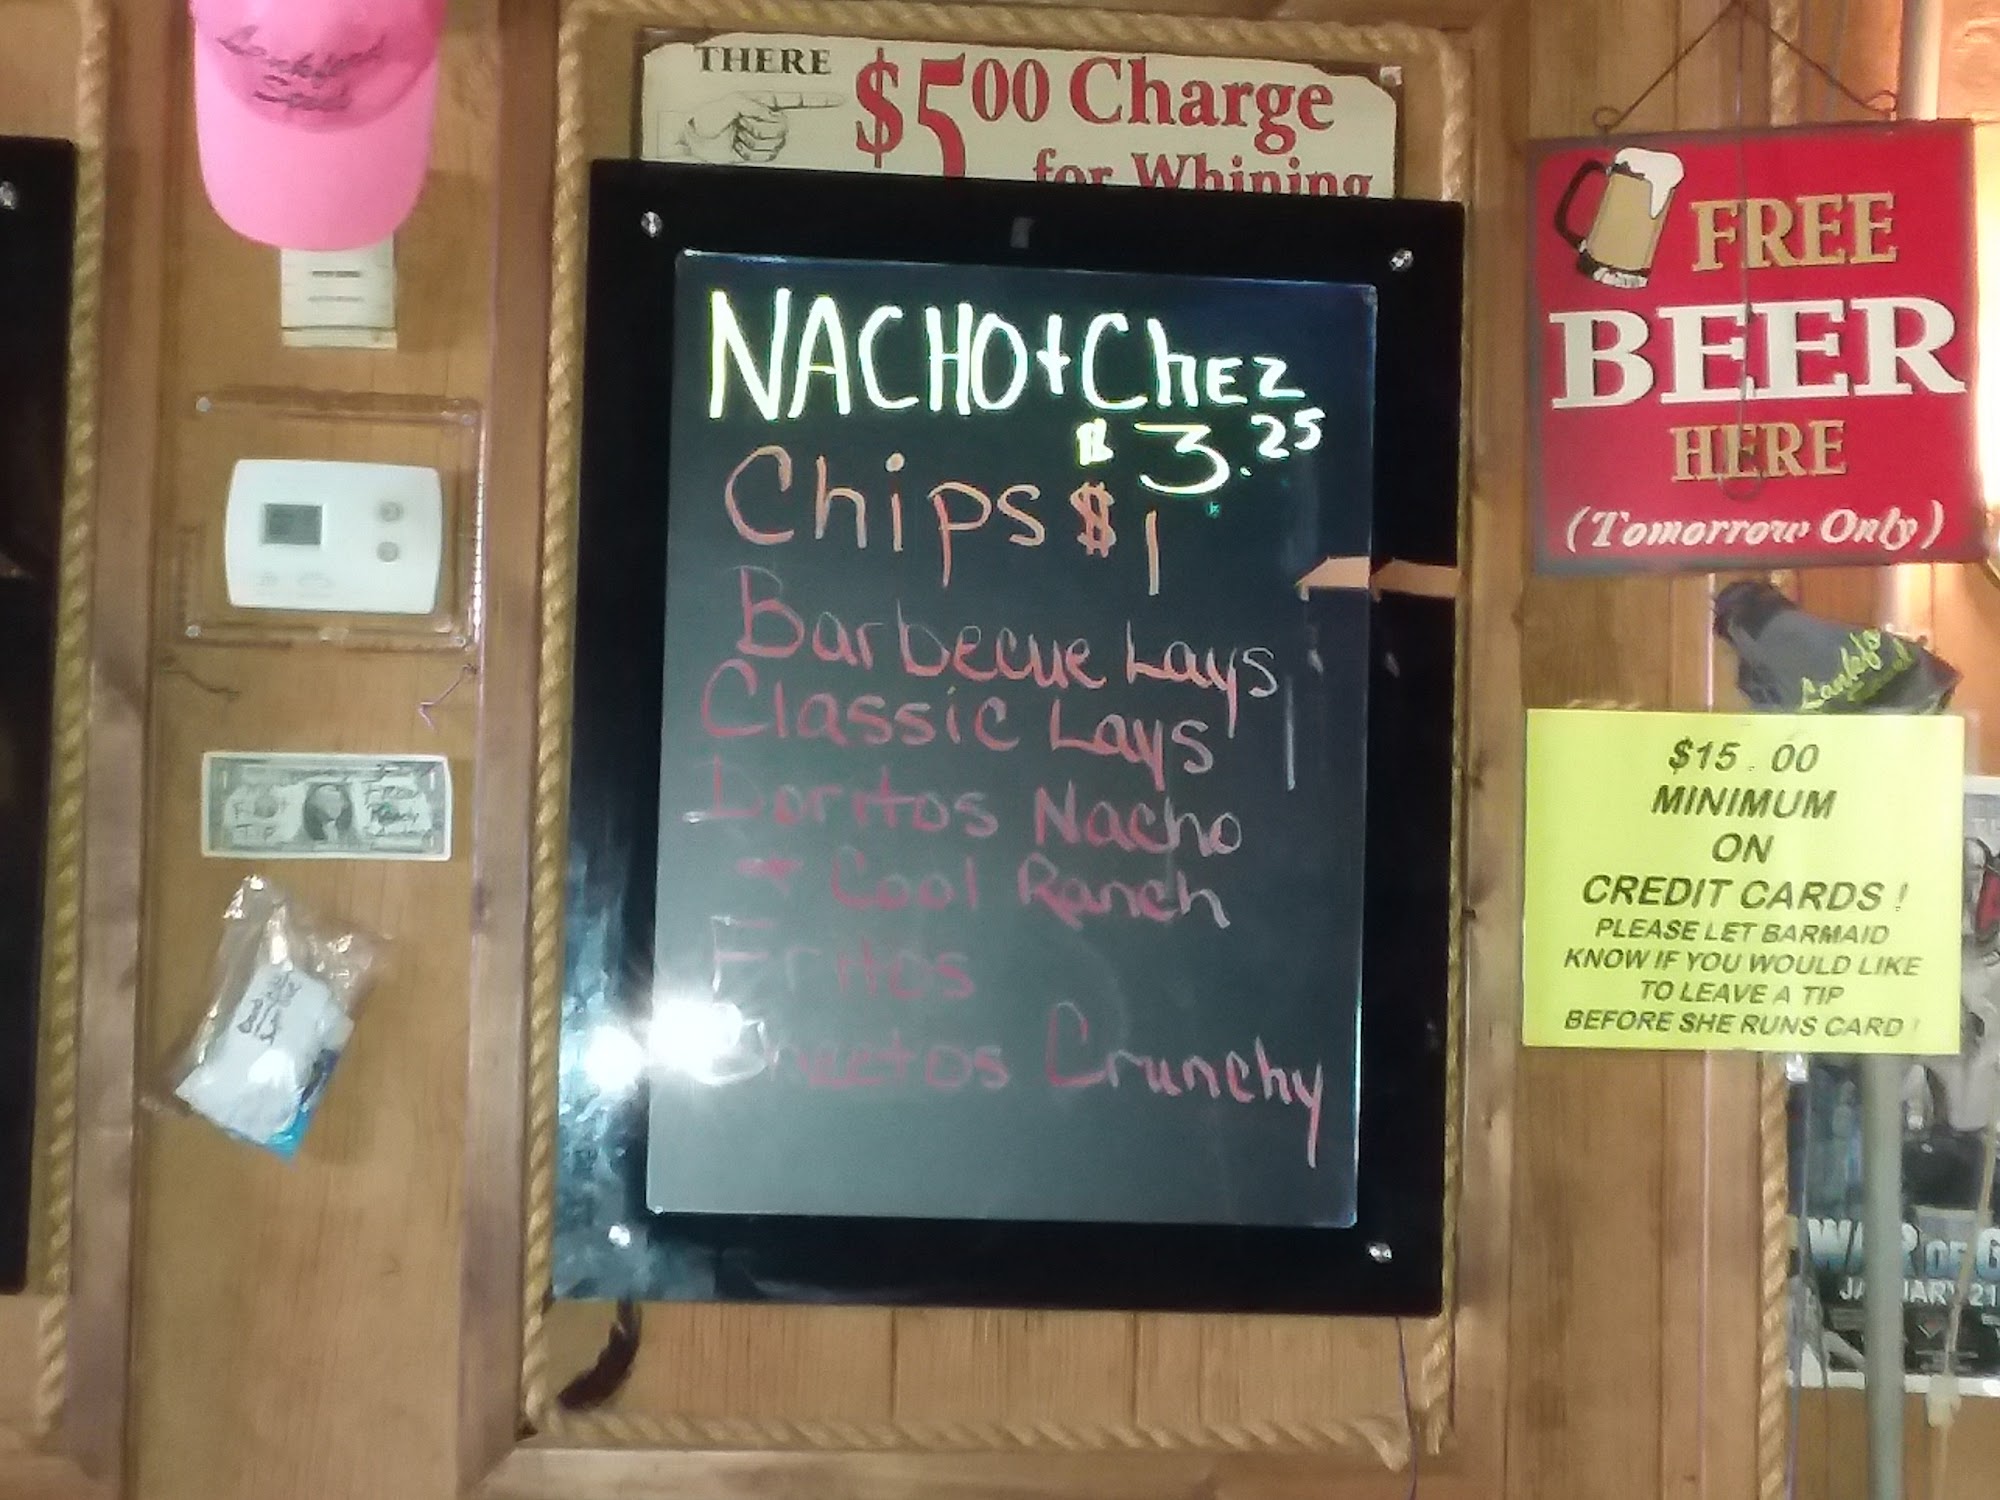 THERE
$5.00 Charge
for Whining
NACHO + ChEZ
$3.25
Chips $1
Barbecue Lays
Classic Lays
Doritos Nacho
+ Cool Ranch
Fritos
Cheetos Crunchy
FREE
BEER
HERE
(Tomorrow Only)
$15.00
MINIMUM
ON
CREDIT CARDS !
PLEASE LET BARMAID
KNOW IF YOU WOULD LIKE
TO LEAVE A TIP
BEFORE SHE RUNS CARD !
First
TIP
WAR OF G
JANUARY 21